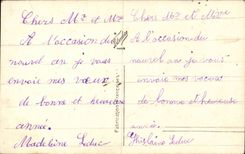 Chers Mr et Mme
A l'occasion du
nouvel an je vous
envoie mes vœux
de bonne et heureuse
année.
Madeleine Leduc
Chers Mr et Mme
A l'occasion du
nouvel an je vous
envoie mes vœux
de bonne et heureuse
année.
Ghislaine Leduc